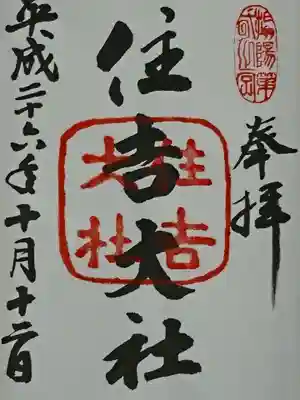 奉拝
住吉大社
平成二十六年十月十二日
住吉
大社